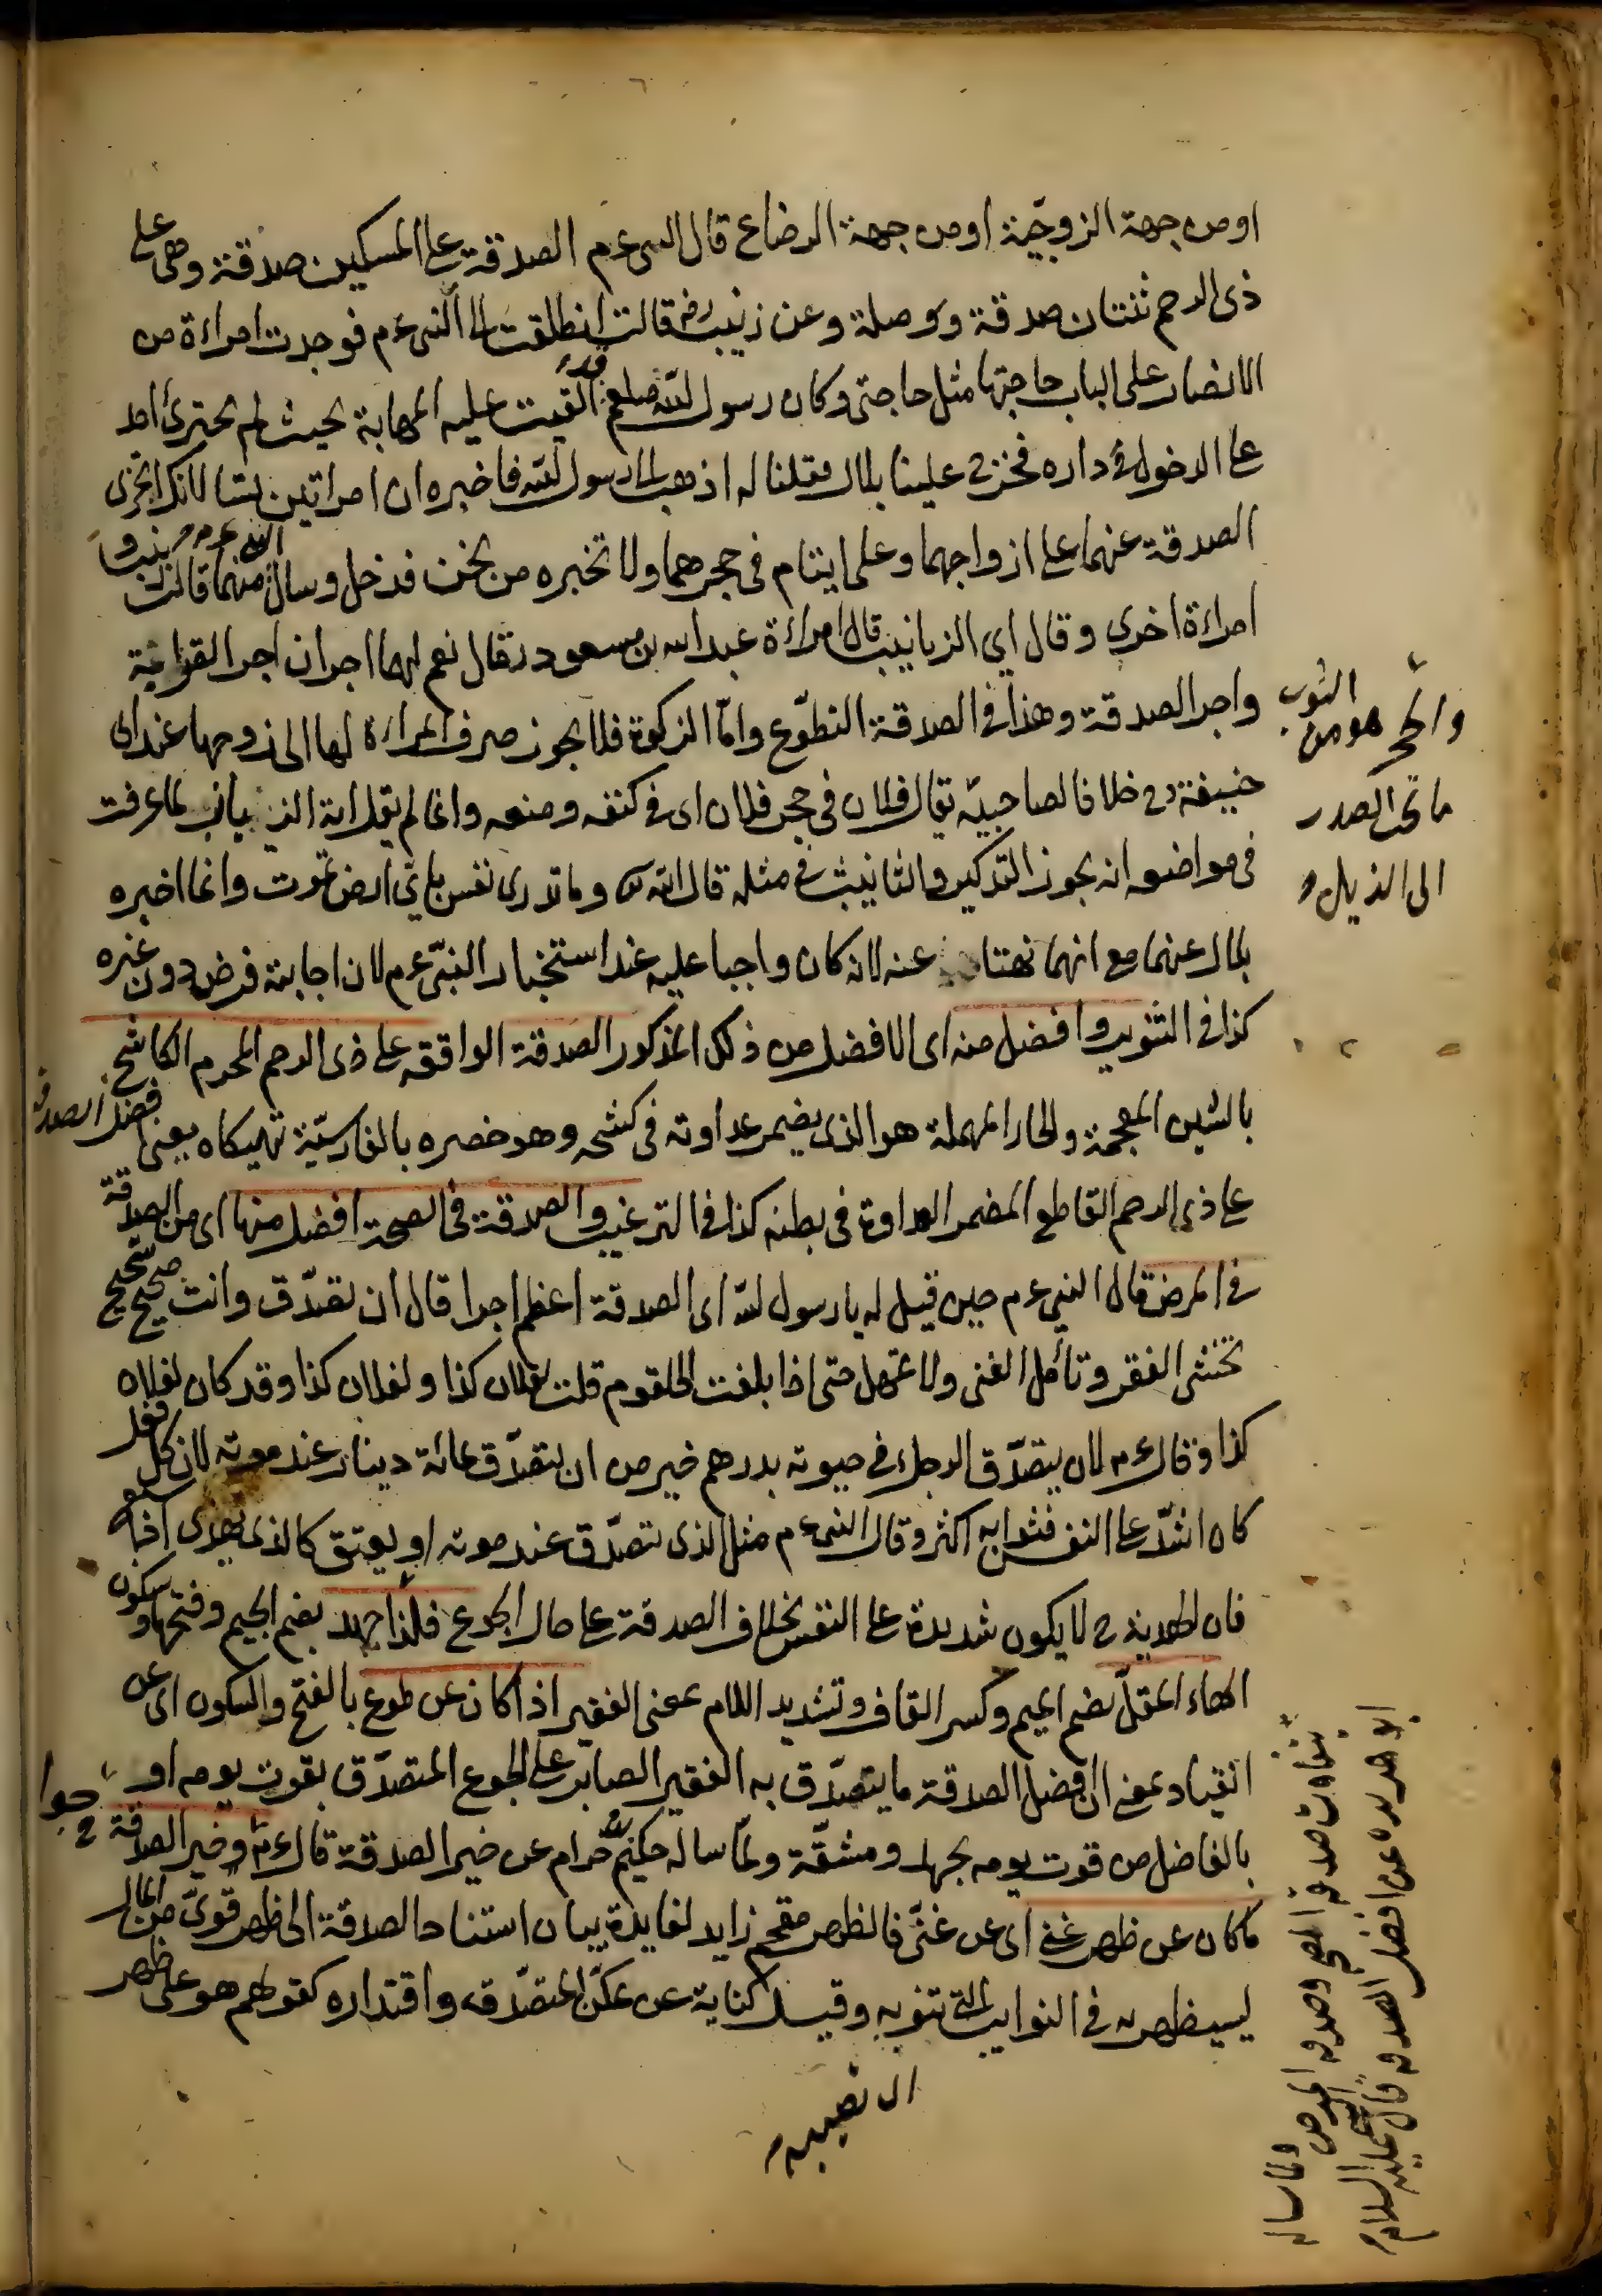 او من جهة الزوجيّة او من جهة الرضاع قال النبى عم الصدقة على المسكين صدقة وهى على
ذى الرحم ثنتان صدقة ووصلة وعن زينب رض قالت انطلقت الى النبى عم فوجدت امراءة من
الانصار على الباب حاجتها مثل حاجتى وكان رسول الله صلعم قد القيت عليه المهابة بحيث لم يجترئ احد
على الدخول فى داره فخرج علينا بلال فقلنا له اذهب الى رسول الله فاخبره ان امراتين يسالانك اتجزى
الصدقة عنهما على ازواجهما وعلى ايتام فى حجرهما ولا تخبره من نحن فدخل وسال النبى عم منهما قال زينب و
امراءة اخرى وقال اي الزيانيب قال امراءة عبد الله بن مسعود فقال نعم لهما اجران اجر القرابة
واجر الصدقة وهذا فى الصدقة التطوّع وامّا الزكوة فلا يجوز صرف المراءة لها الى زوجها عند ابى
حنيفة رح خلافا لصاحبيه يقال فلان فى حجر فلان اى فى كنفه ومنعه وانما لم يقل اية الزيانب لما عرفت
فى مواضعه انه يجوز التذكير والتانيث فى مثله قال الله تع وما تدرى نفس باي ارض تموت وانما اخبره
بلال عنهما مع انهما نهتا عنه لانه كان واجبا عليه عند استخبار النبىّ عم لان اجابته فرض دون غيره
كذا فى التنوير وافضل منه اى الافضل من ذلك المذكور الصدقة الواقعة على ذى الرحم المحرم الكاشح
بالشين المعجمة والحاء المهملة هو الذى يضمر عداوته فى كشحه وهو خصره بالفارسيّة تهيكاه يعنى افضل الصدقة
على ذى الرحم القاطع المضمر العداوة فى بطنه كذا فى الترغيب والصدقة فى الصحة افضل منها اى من الصدقة
فى المرض قال النبى عم حين قيل له يا رسول الله اى الصدقة اعظم اجرا قال ان تصدّق وانت صحيح شحيح
تخشى الفقر وتأمل الغنى ولا تمهل حتى اذا بلغت الحلقوم قلت لفلان كذا ولفلان كذا وقد كان لفلان
كذا وقال عم لان يتصدّق الرجل فى حيوته بدرهم خير من ان يتصدّق بمائة دينار عند موته لان كل فعل
كان اشدّ على النفس فثوابه اكثر وقال النبى عم مثل الذى تصدّق عند موته او يعتق كالذى يهدى اذا شبع
فان الهدية ح لا يكون شديدة على النفس بخلاف الصدقة على حال الجوع فلذا جهد بضم الجيم وفتحها وسكون
الهاء المقلّ بضم الميم وكسر القاف وتشديد اللام بمعنى الفقير اذا كان عن طوع بالفتح والسكون اى عن
انقياد بمعنى ان افضل الصدقة ما يتصدّق به الفقير الصابر على الجوع المتصدّق بقوت يومه او
بالفاضل من قوت يومه بجهد ومشقّة ولمّا ساله حكيم بن حرام عن خير الصدقة قال عم وخير الصدقة
ما كان عن ظهر غنى اى عن غنّى فالظهر مقحم زايد لفايدة بيان استناد الصدقة الى ظهر قوىّ من المال
ليستظهر به فى النوايب التى تنوبه وقيل كناية عن تمكّن المتصدّق واقتداره كقولهم هو على ظهر
والحجر هو من الثوب
ما تحت الصدر
الى الذيل
ابو هريره عن افضل الصدقه قال عليه السلام